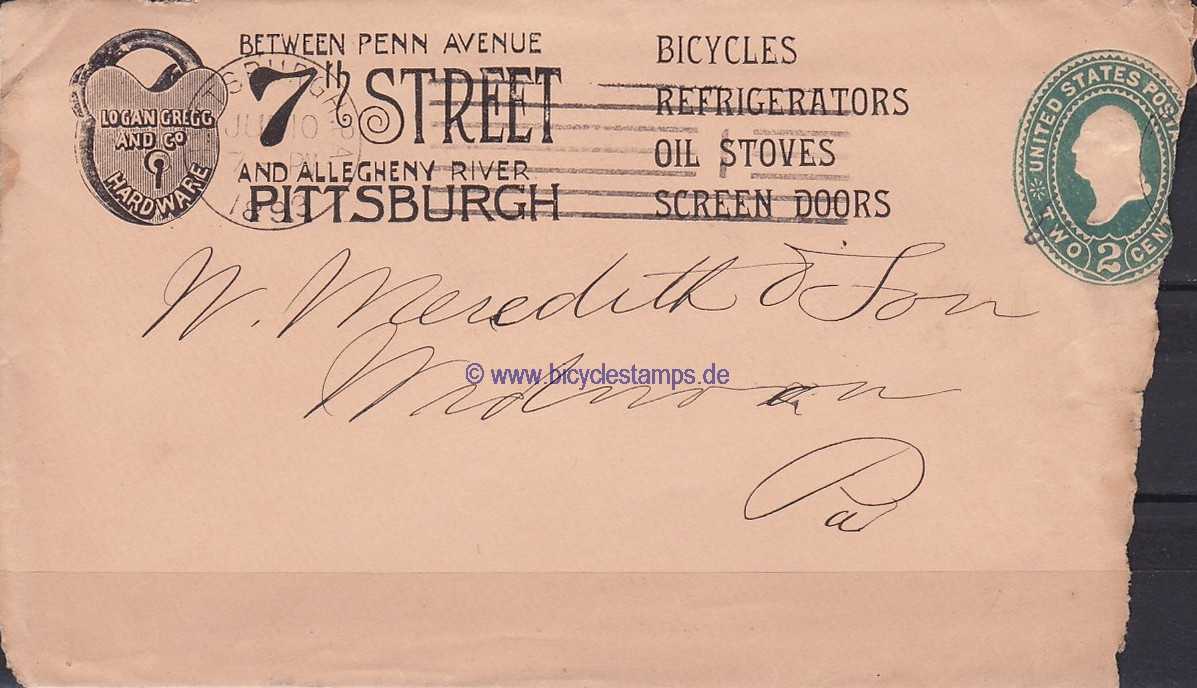 LOGAN GREGG
AND CO
HARDWARE
BETWEEN PENN AVENUE
7th STREET
AND ALLEGHENY RIVER
PITTSBURGH
BICYCLES
REFRIGERATORS
OIL STOVES
SCREEN DOORS
UNITED STATES POSTA
TWO 2 CEN
W. Meredith & Son
© www.bicyclestamps.de
Pa